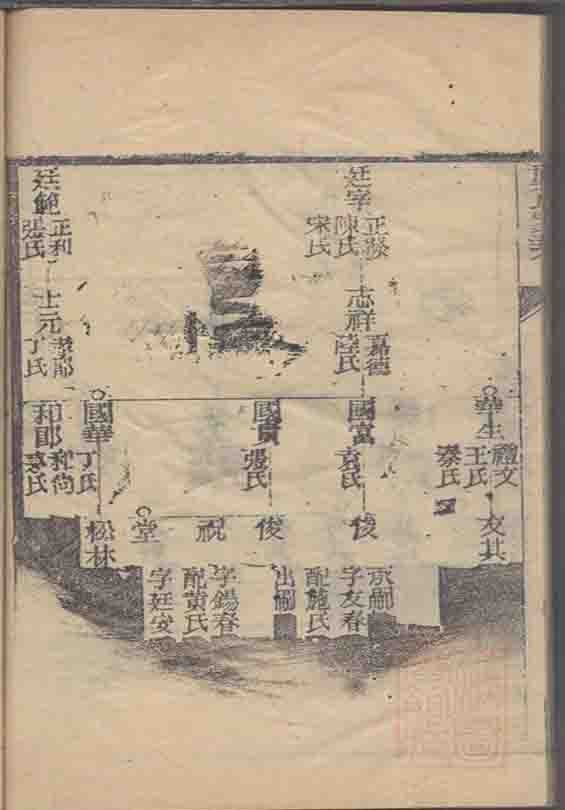 華生
禮文
王氏
秦氏
友其
廷字
正
陳氏
宋氏
志祥
嘉德
陸氏
國富
袁氏
俊
承嗣
字友春
配施氏
國賓
張氏
俊
出嗣
祝
字錫春
配黃氏
堂
字廷安
國華
丁氏
松林
廷範
正和
張氏
士元
丁氏
和郎
和尚
氏